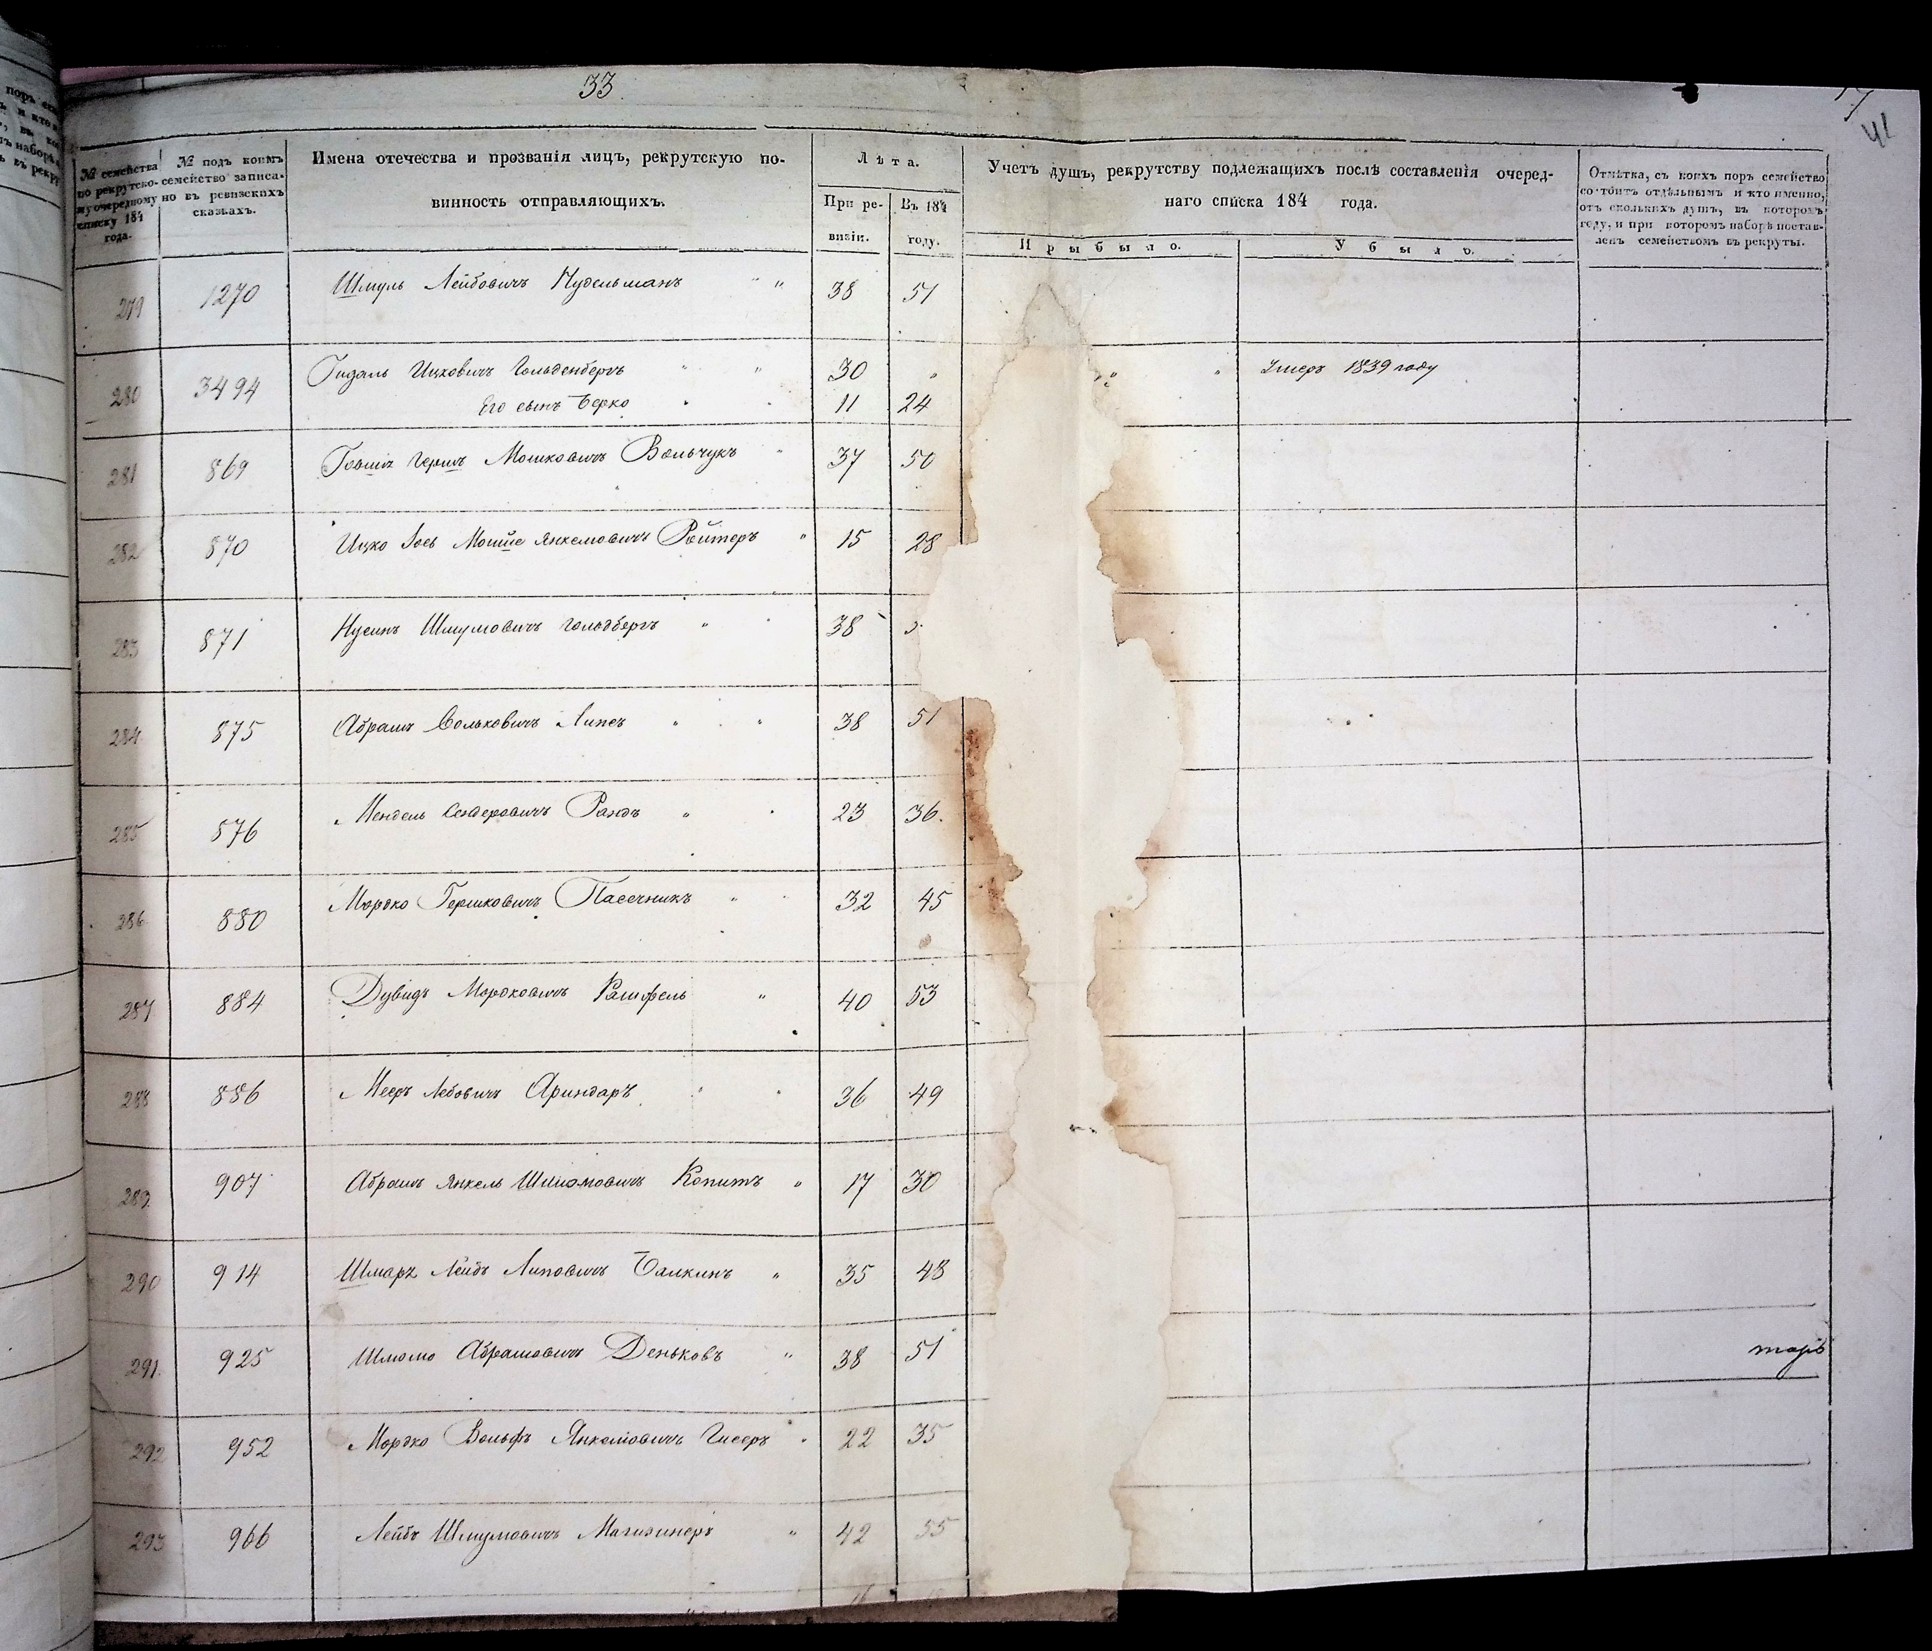 33
41
№ семейства по рекрутско-му очередному списку 184 года.
№ подъ коимъ семейство записано въ ревизскихъ сказкахъ.
Имена отечества и прозванія лицъ, рекрутскую по-
винность отправляющихъ.
Лѣта.
При ре-
визіи.
Въ 184
году.
Учетъ душъ, рекрутству подлежащихъ послѣ составленія очеред-
наго списка 184 года.
Прыбыло.
Убыло.
Отмѣтка, съ коихъ поръ семейство
состоитъ отдѣльнымъ и кто именно,
отъ сколькихъ душъ, въ которомъ
году, и при которомъ наборѣ постав-
ленъ семействомъ въ рекруты.
279 1270 Шмуль Лейбовичъ Нудельманъ " " 38 51
280 3494 Гидаль Ицковичъ Гольденбергъ " " 30 " " " Умеръ 1839 году
Его сынъ Берко " " 11 24
281 869 Гершъ Мошковичъ Вольчукъ " 37 50
282 870 Ицко Іось Мошше Янкелювичъ Ройтеръ " 15 28
283 871 Нусинъ Шмулювичъ Гольдбергъ " " 38
284 875 Абрамъ Вольковичъ Липец " " 38 51
285 876 Мендель Сендеровичъ Рандъ " " 23 36.
286 880 Мордко Гершковичъ Пасечникъ " " 32 45
287 884 Дувидъ Мордковичъ Рашфель " 40 53
288 886 Мееръ Лебовичъ Ариндаръ " " 36 49
289 907 Абрамъ Янкель Шлиомовичъ Копитъ " 17 30
290 914 Шмарх Лейбъ Липовичъ Балкинъ " 35 48
291. 925 Шлюмо Абрамовичъ Деньковъ " 38 51
292 952 Мордко Вольфъ Янкелювичъ Гисеръ " 22 35
293 966 Лейбъ Шмулювичъ Магизинеръ " 42 55